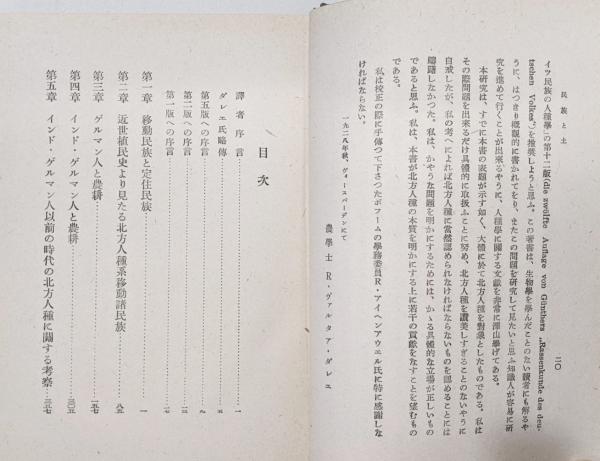 民族と土
二〇
イツ民族の人種學』の第十二版(die zwölfte Auflage von Günthers „Rassenkunde des deu-
tschen Volkes“)を推奬しようと思ふ。この著書は、生物學を學んだことのない讀者にも解るや
うに、はつきり概觀的に書かれてをり、またこの問題を研究して見たいと思ふ知識人が容易に研
究を進めて行くことが出來るやうに、人種學に關する文獻を非常に澤山擧げてある。
本研究は、すでに本書の表題が示す如く、大體に於て北方人種を對象としたものである。私は
その際問題を出來るだけ具體的に取扱ふことに努め、北方人種を讃美しすぎることのないやうに
自戒したが、私の考へによれば北方人種に當然認められなければならないものを認めることには
躊躇しなかつた。私は、かやうな問題を明かにするためには、かゝる具體的な立場が正しいもの
であると思ふ。私は、本書が北方人種の本質を明かにする上に若干の貢獻をなすことを望むもの
である。
私は校正の際に手傳つて下さつたボフームの學務委員R・アイヘンアウエル氏に特に感謝しな
ければならない。
一九二八年秋、ヴィースバーデンにて
農學士 R・ヴァルタア・ダレエ
目次
譯者序言……………一
ダレエ氏略傳……………五
第五版への序言……………九
第二版への序言……………
第一版への序言……………一七
第一章 移動民族と定住民族……………一
第二章 近世植民史より見たる北方人種系移動諸民族……………八五
第三章 ゲルマン人と農耕……………一五七
第四章 インド・ゲルマン人と農耕……………二〇五
第五章 インド・ゲルマン人以前の時代の北方人種に關する考察…三一七